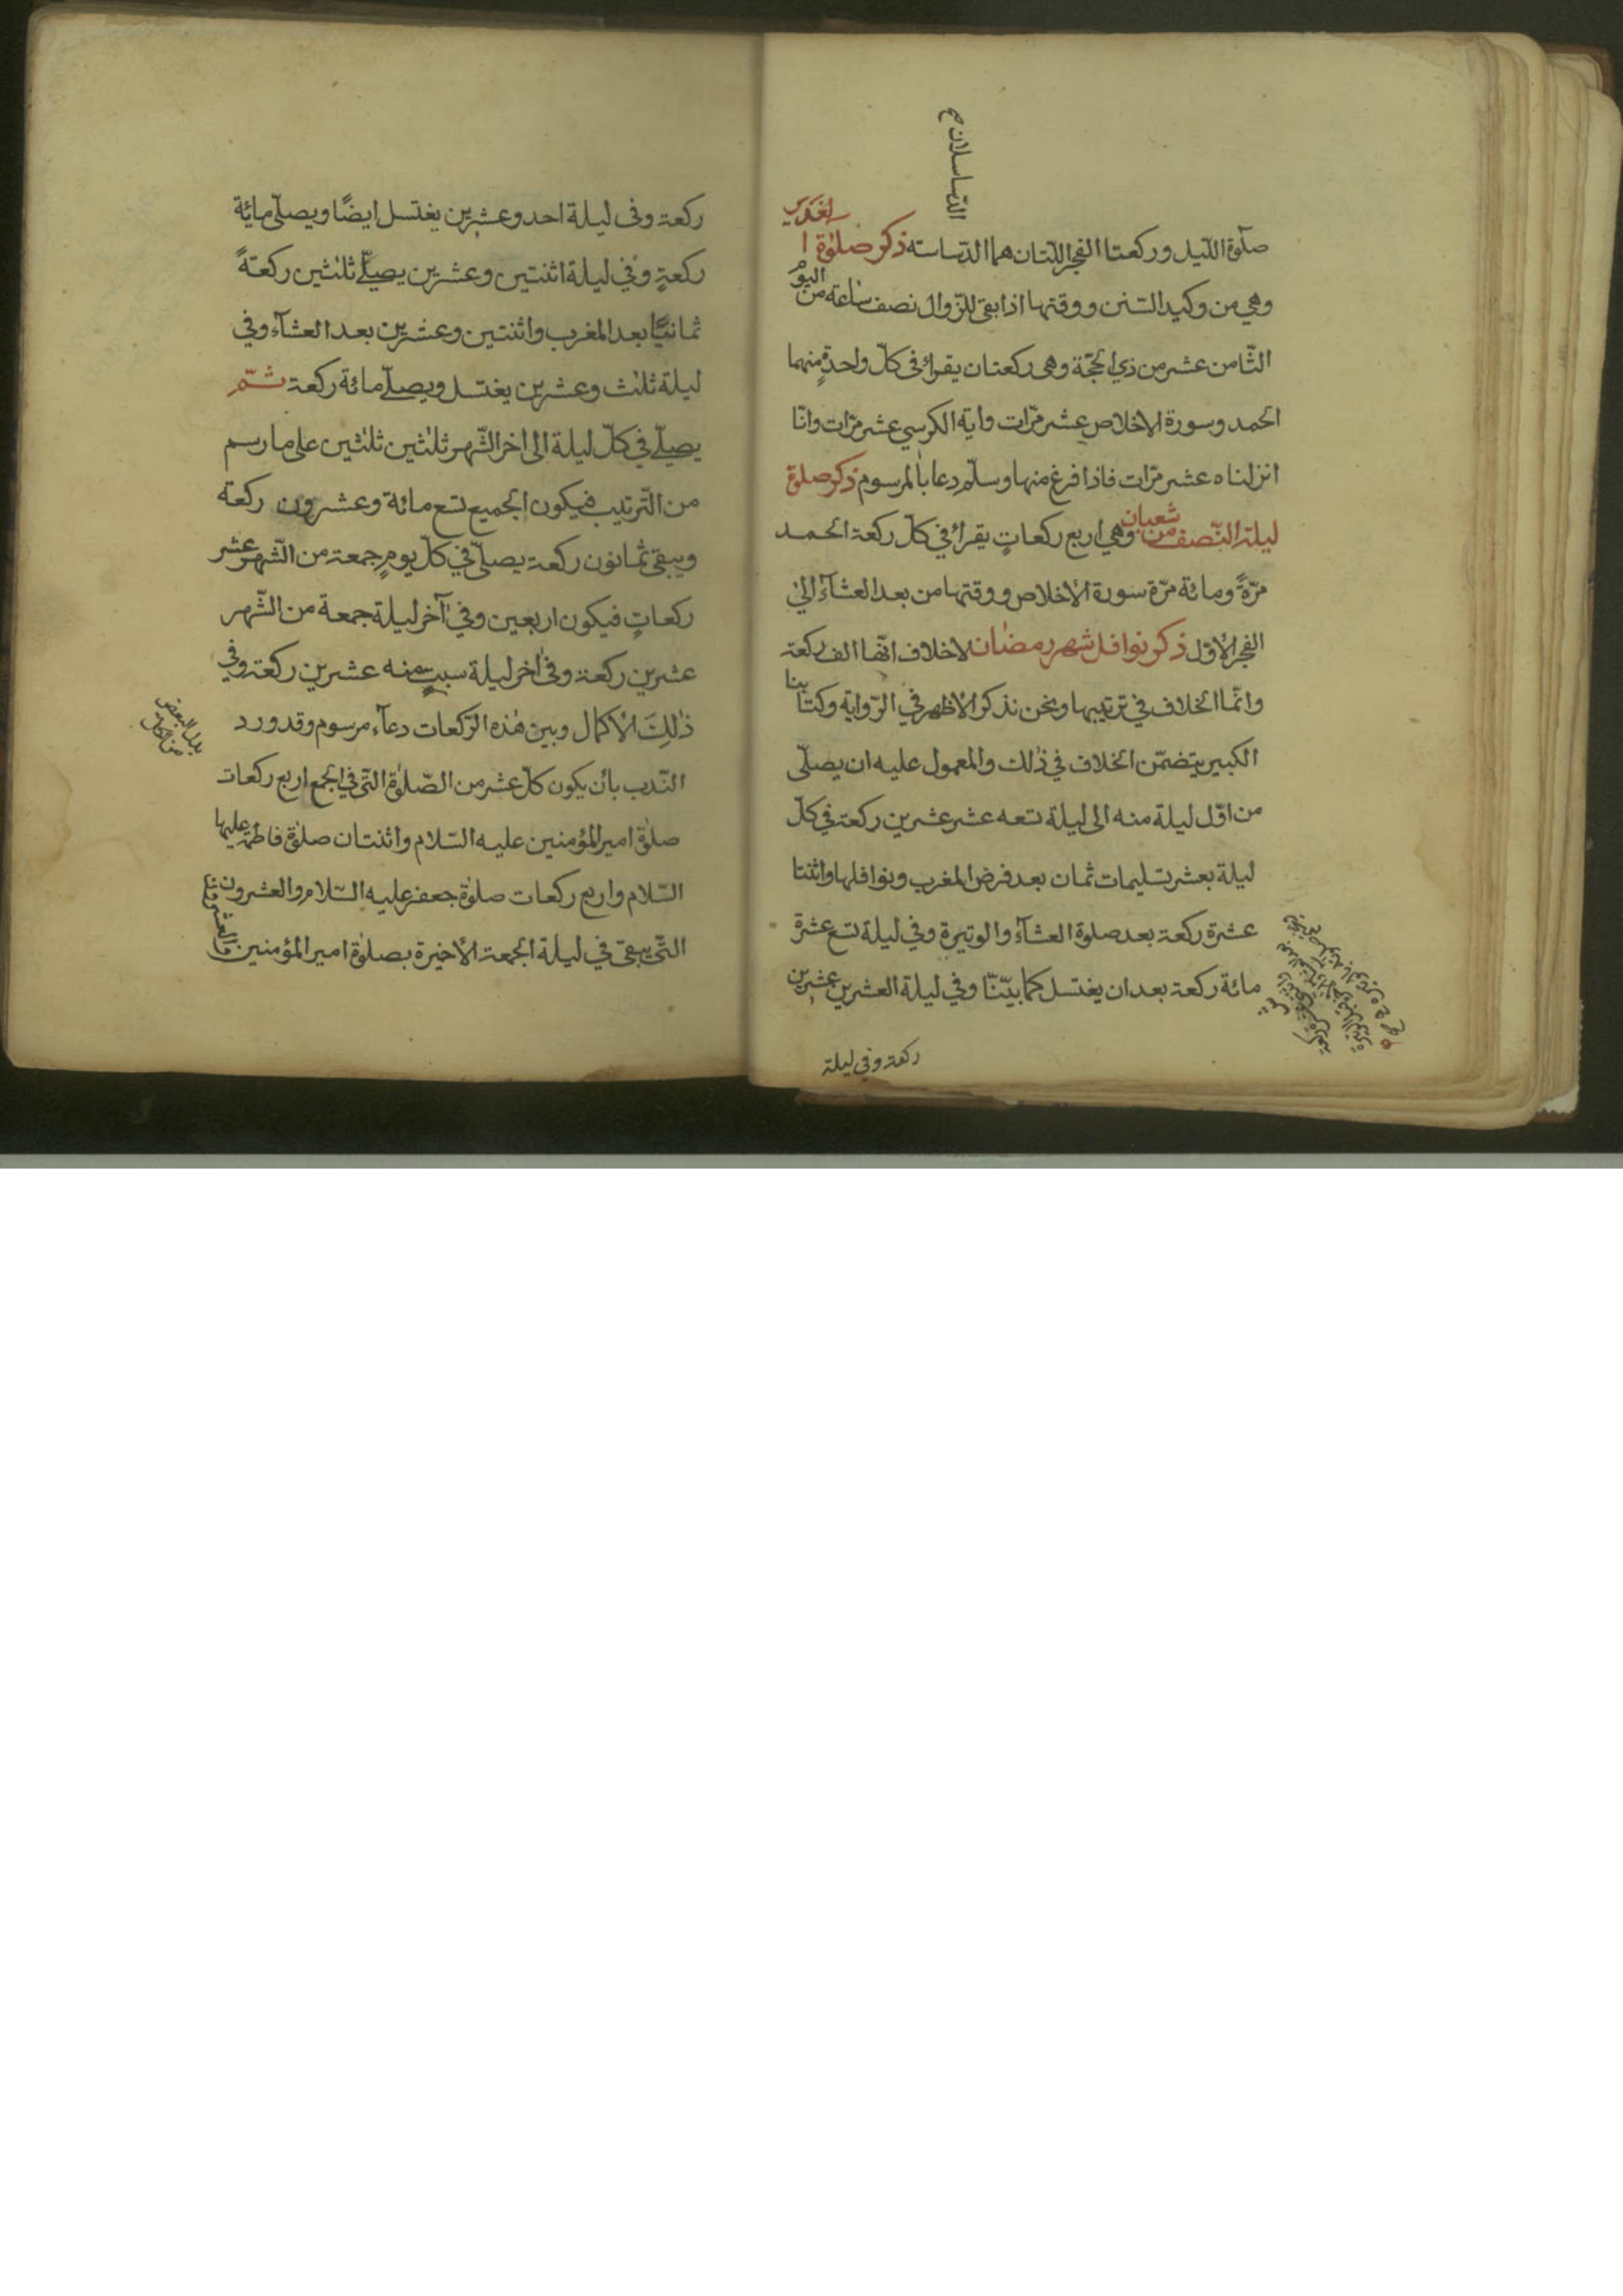 الدساسلان صح
صلوة اللّيل وركعتا الفجر اللّتان هما الدّساسته ذكر صلوٰة الغدير
وهي من وكيد السّنن ووقتها اذا بقي للزّوال نصف ساعة من اليوم
الثّامن عشر من ذي الحجّة وهى ركعتان يقرائ فى كلّ واحدةٍ منهما
الحمد وسورة الاخلاص عشر مرّات واٰية الكرسي عشر مرّات وانّا
انزلناه عشر مرّات فاذا فرغ منها وسلّم دعا بالمرسوم ذكر صلوة
ليلة النّصف من شعبان وهي اربع ركعاتٍ يقرائ في كلّ ركعة الحمد
مرّةً ومائة مرّة سورة الأخلاص ووقتها من بعد العشآء الىٰ
الفجر الأوّل ذكر نوافل شهر رمضان لاخلاف انّها الف ركعة
وانّما الخلاف في ترتيبها ونحن نذكر الأظهر في الرّواية وكتابنا
الكبير يتضمّن الخلاف في ذٰلك والمعمول عليه ان يصلّى
من اوّل ليلة منه الى ليلة تسعه عشر عشرين ركعة في كلّ
ليلة بعشر تسليمات ثمان بعد فرض المغرب ونوافلها واثنتا
عشرة ركعة بعد صلوة العشآء والوتيرة وفي ليلة تسع عشرة
مائة ركعة بعد ان يغتسل كما بيّنّا وفي ليلة العشرين عشرين
ركعة وفي ليلة
ركعة وفى ليلة احد وعشرين يغتسل ايضًا ويصلّى مائة
ركعةٍ وفي ليلة اثنتين وعشرين يصلّي ثلثين ركعةً
ثمانيًا بعد المغرب واثنتين وعشرين بعد العشآء وفي
ليلة ثلث وعشرين يغتسل ويصلّي مائة ركعة ثمّ
يصلّي في كلّ ليلة الى اخر الشّهر ثلثين ثلثين على ما رسم
من التّرتيب فيكون الجميع تسع مائة وعشرون ركعة
ويبقى ثمانون ركعة يصلّي في كلّ يومٍ جمعة من الشّهر عشر
ركعاتٍ فيكون اربعين وفي آخر ليلة جمعة من الشّهر
عشرين ركعة وفى اٰخر ليلة سبتٍ منه عشرين ركعة وفي
ذٰلِكَ الأكمال وبين هٰذه الرّكعات دعآء مرسوم وقد ورد
بدل البعض من الكل
النّدب بأن يكون كلّ عشر من الصّلوٰة الّتي في الجمع اربع ركعات
صلوٰة امير المؤمنين عليه السّلام واثنتان صلوٰة فاطمة عليها
السّلام واربع ركعات صلوٰة جعفر عليه السّلام والعشرون
الّتي يبقى في ليلة الجمعة الأخيرة بصلوٰة امير المؤمنين والعشرون